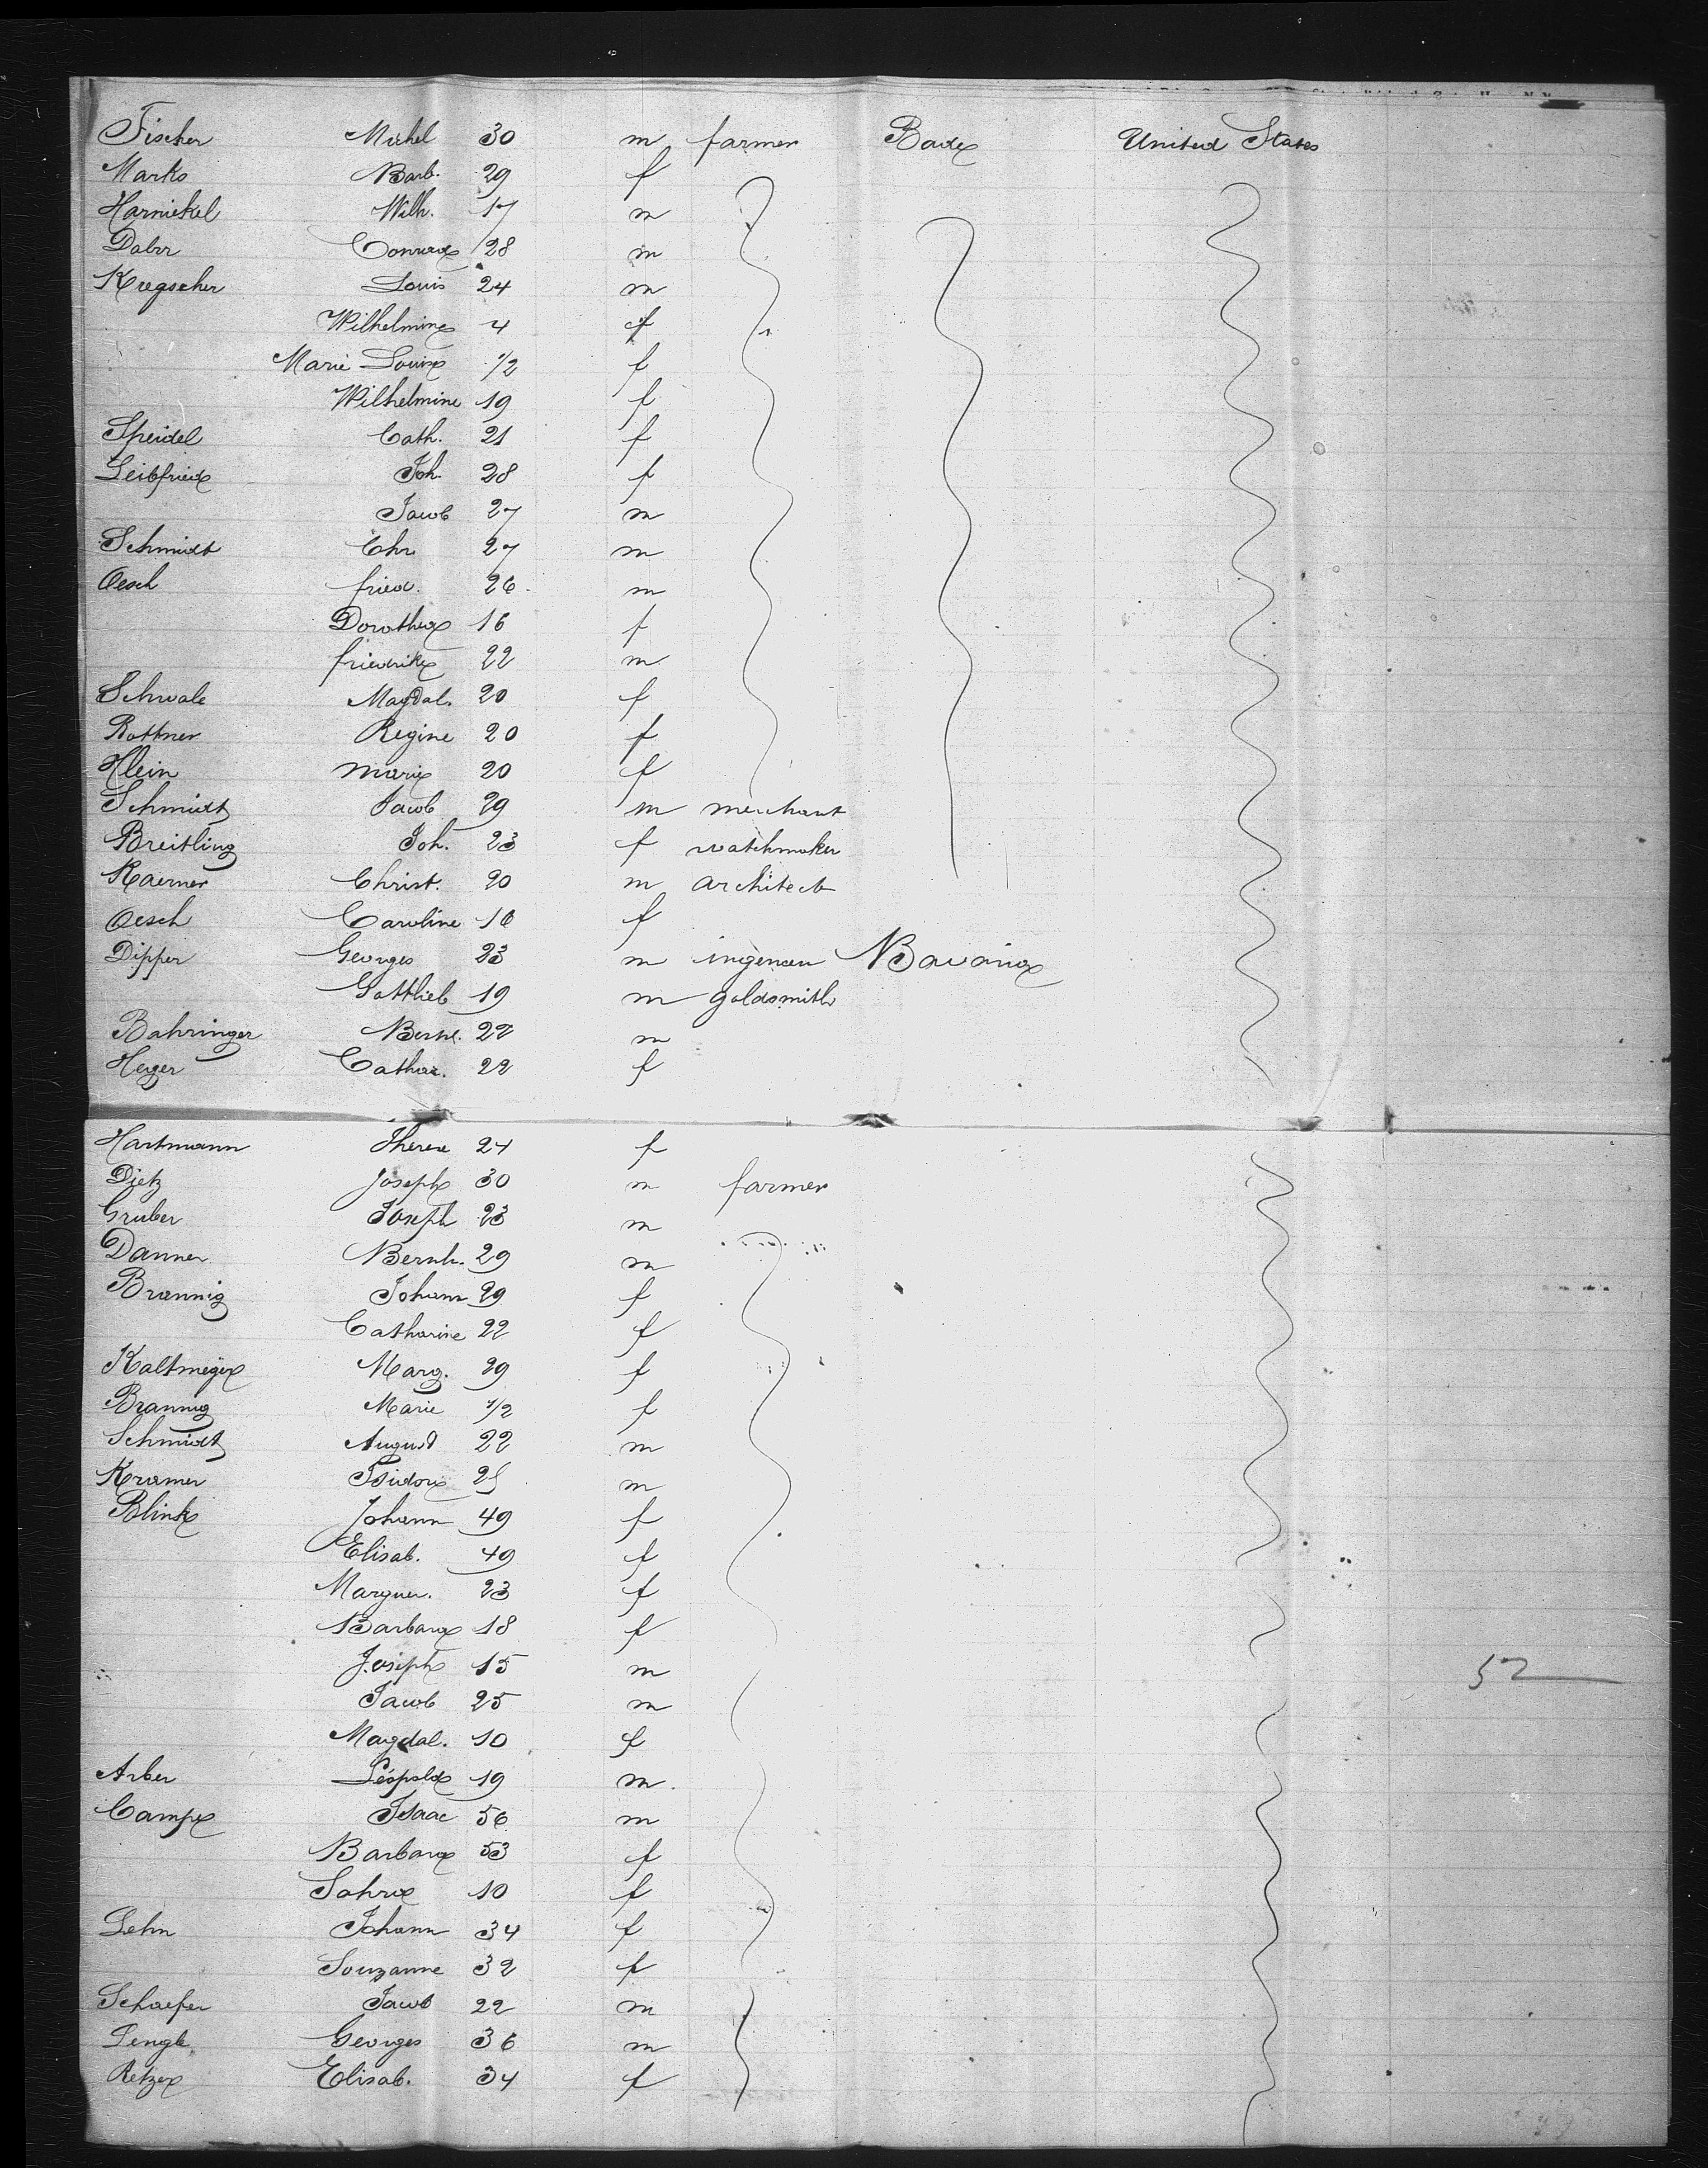 Fischer Michel 30 m farmer Bade United States
Marks Barb. 29 f
Harnickel Wilh. 17 m
Conrad 28 m
Louis 24 m
Wilhelmine 4 f
Marie Louise 1/2 f
Wilhelmine 19 f
Speidel Cath. 21 f
Leibfried Joh. 28 f
Jacob 27 m
Schmidt Chr. 27 m
Oesch fried. 26 m
Dorothea 16 f
friedrike 22 m
Schwale Magdal. 20 f
Rottner Regine 20 f
Klein Marie 20 f
Schmidt Jacob 29 m merchant
Breitling Joh. 23 f watchmaker
Kaerner Christ. 20 m architect
Oesch Caroline 16 f
Dipper Georges 23 m Bavaria
Gottlieb 19 m goldsmith
Bahringer 22 m
Heger Cathar. 22 f
Hartmann Therese 24 f
Dietz Joseph 30 m farmer
Gruber Joseph 23 m
Danner Bernh. 29 m
Brannig Johann 29 f
Catharine 22 f
Kaltmeger Marg. 29 f
Brannig Marie 1/2 f
Schmidt August 22 m
Kramer Isidore 25 m
Blink Johann 49 f
Elisab. 49 f
Marguer. 23 f
Barbara 18 f
Joseph 15 m 52
Jacob 25 m
Magdal. 10 f
Arber Léopold 19 m
Campe Isaac 56 m
Barbara 53 f
10 f
Lehn Johann 34 f
Souzanne 32 f
Schaefer Jacob 22 m
Lengle Georges 36 m
Retzer Elisab. 34 f